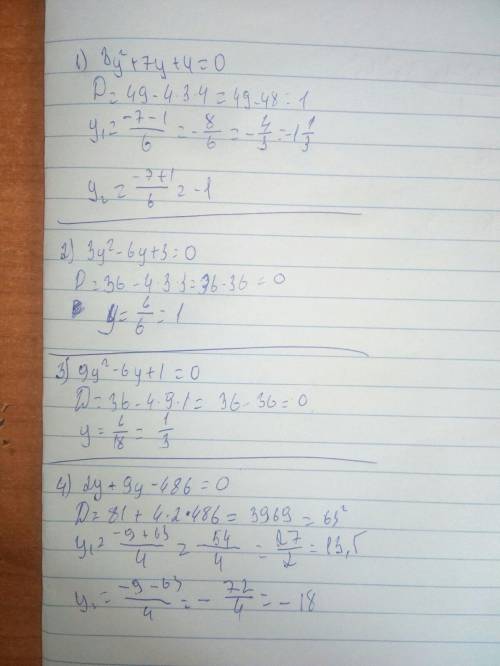 1) 3y²+7y+4=0
D=49-4·3·4=49-48=1
y₁=\frac{-7-1}{6}=-\frac{8}{6}=-\frac{4}{3}=-1\frac{1}{3}
y₂=\frac{-7+1}{6}=-1
2) 3y²-6y+3=0
D=36-4·3·3=36-36=0
y=\frac{6}{6}=1
3) 9y²-6y+1=0
D=36-4·9·1=36-36=0
y=\frac{6}{18}=\frac{1}{3}
4) 2y+9y-486=0
D=81+4·2·486=3969=63²
y₁=\frac{-9+63}{4}=\frac{54}{4}=\frac{27}{2}=13,5
y₂=\frac{-9-63}{4}=-\frac{72}{4}=-18